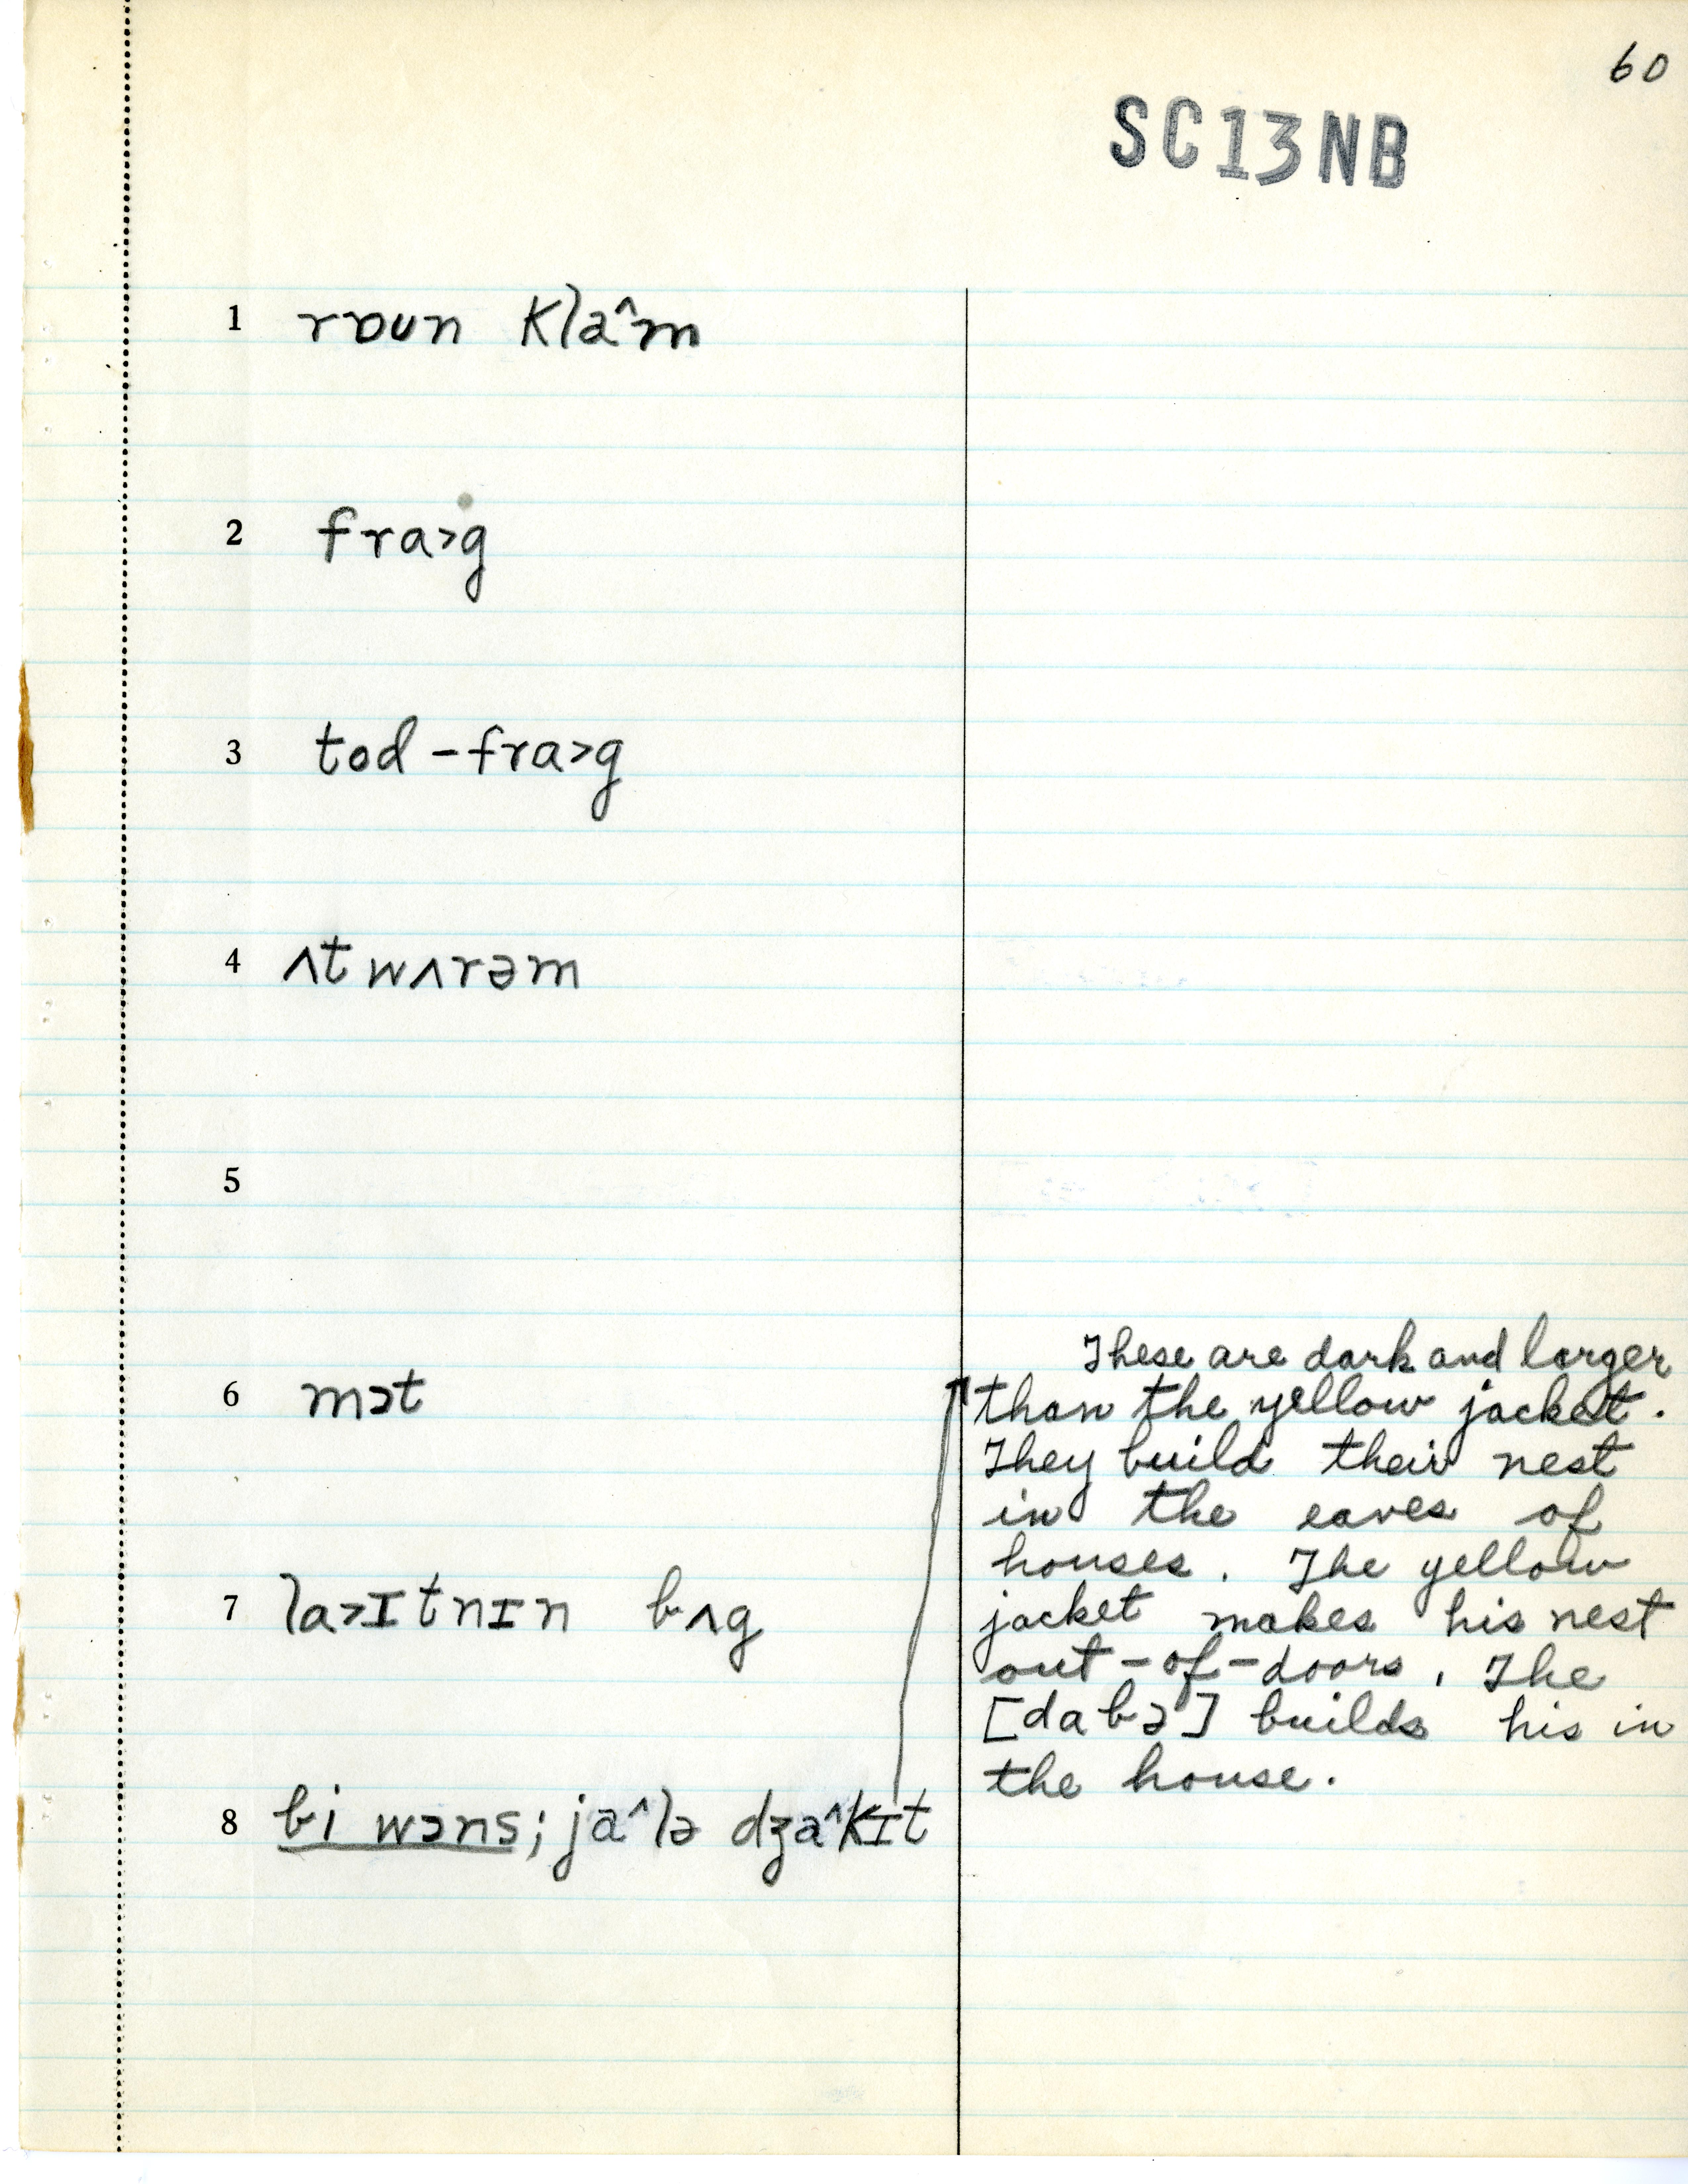 60
SC13NB
1 rɒun klə^m
2 fra>g
3 tod-fra>g
4 ʌt wʌrəm
5
6 mɔt
7 la>ɪtnɪn bʌg
8 bi wɔns; ja^lə dʒa^kɪt
These are dark and larger
than the yellow jacket.
They build their nest
in the eaves of
houses. The yellow
jacket makes his nest
out-of-doors. The
[dabə] builds his in
the house.